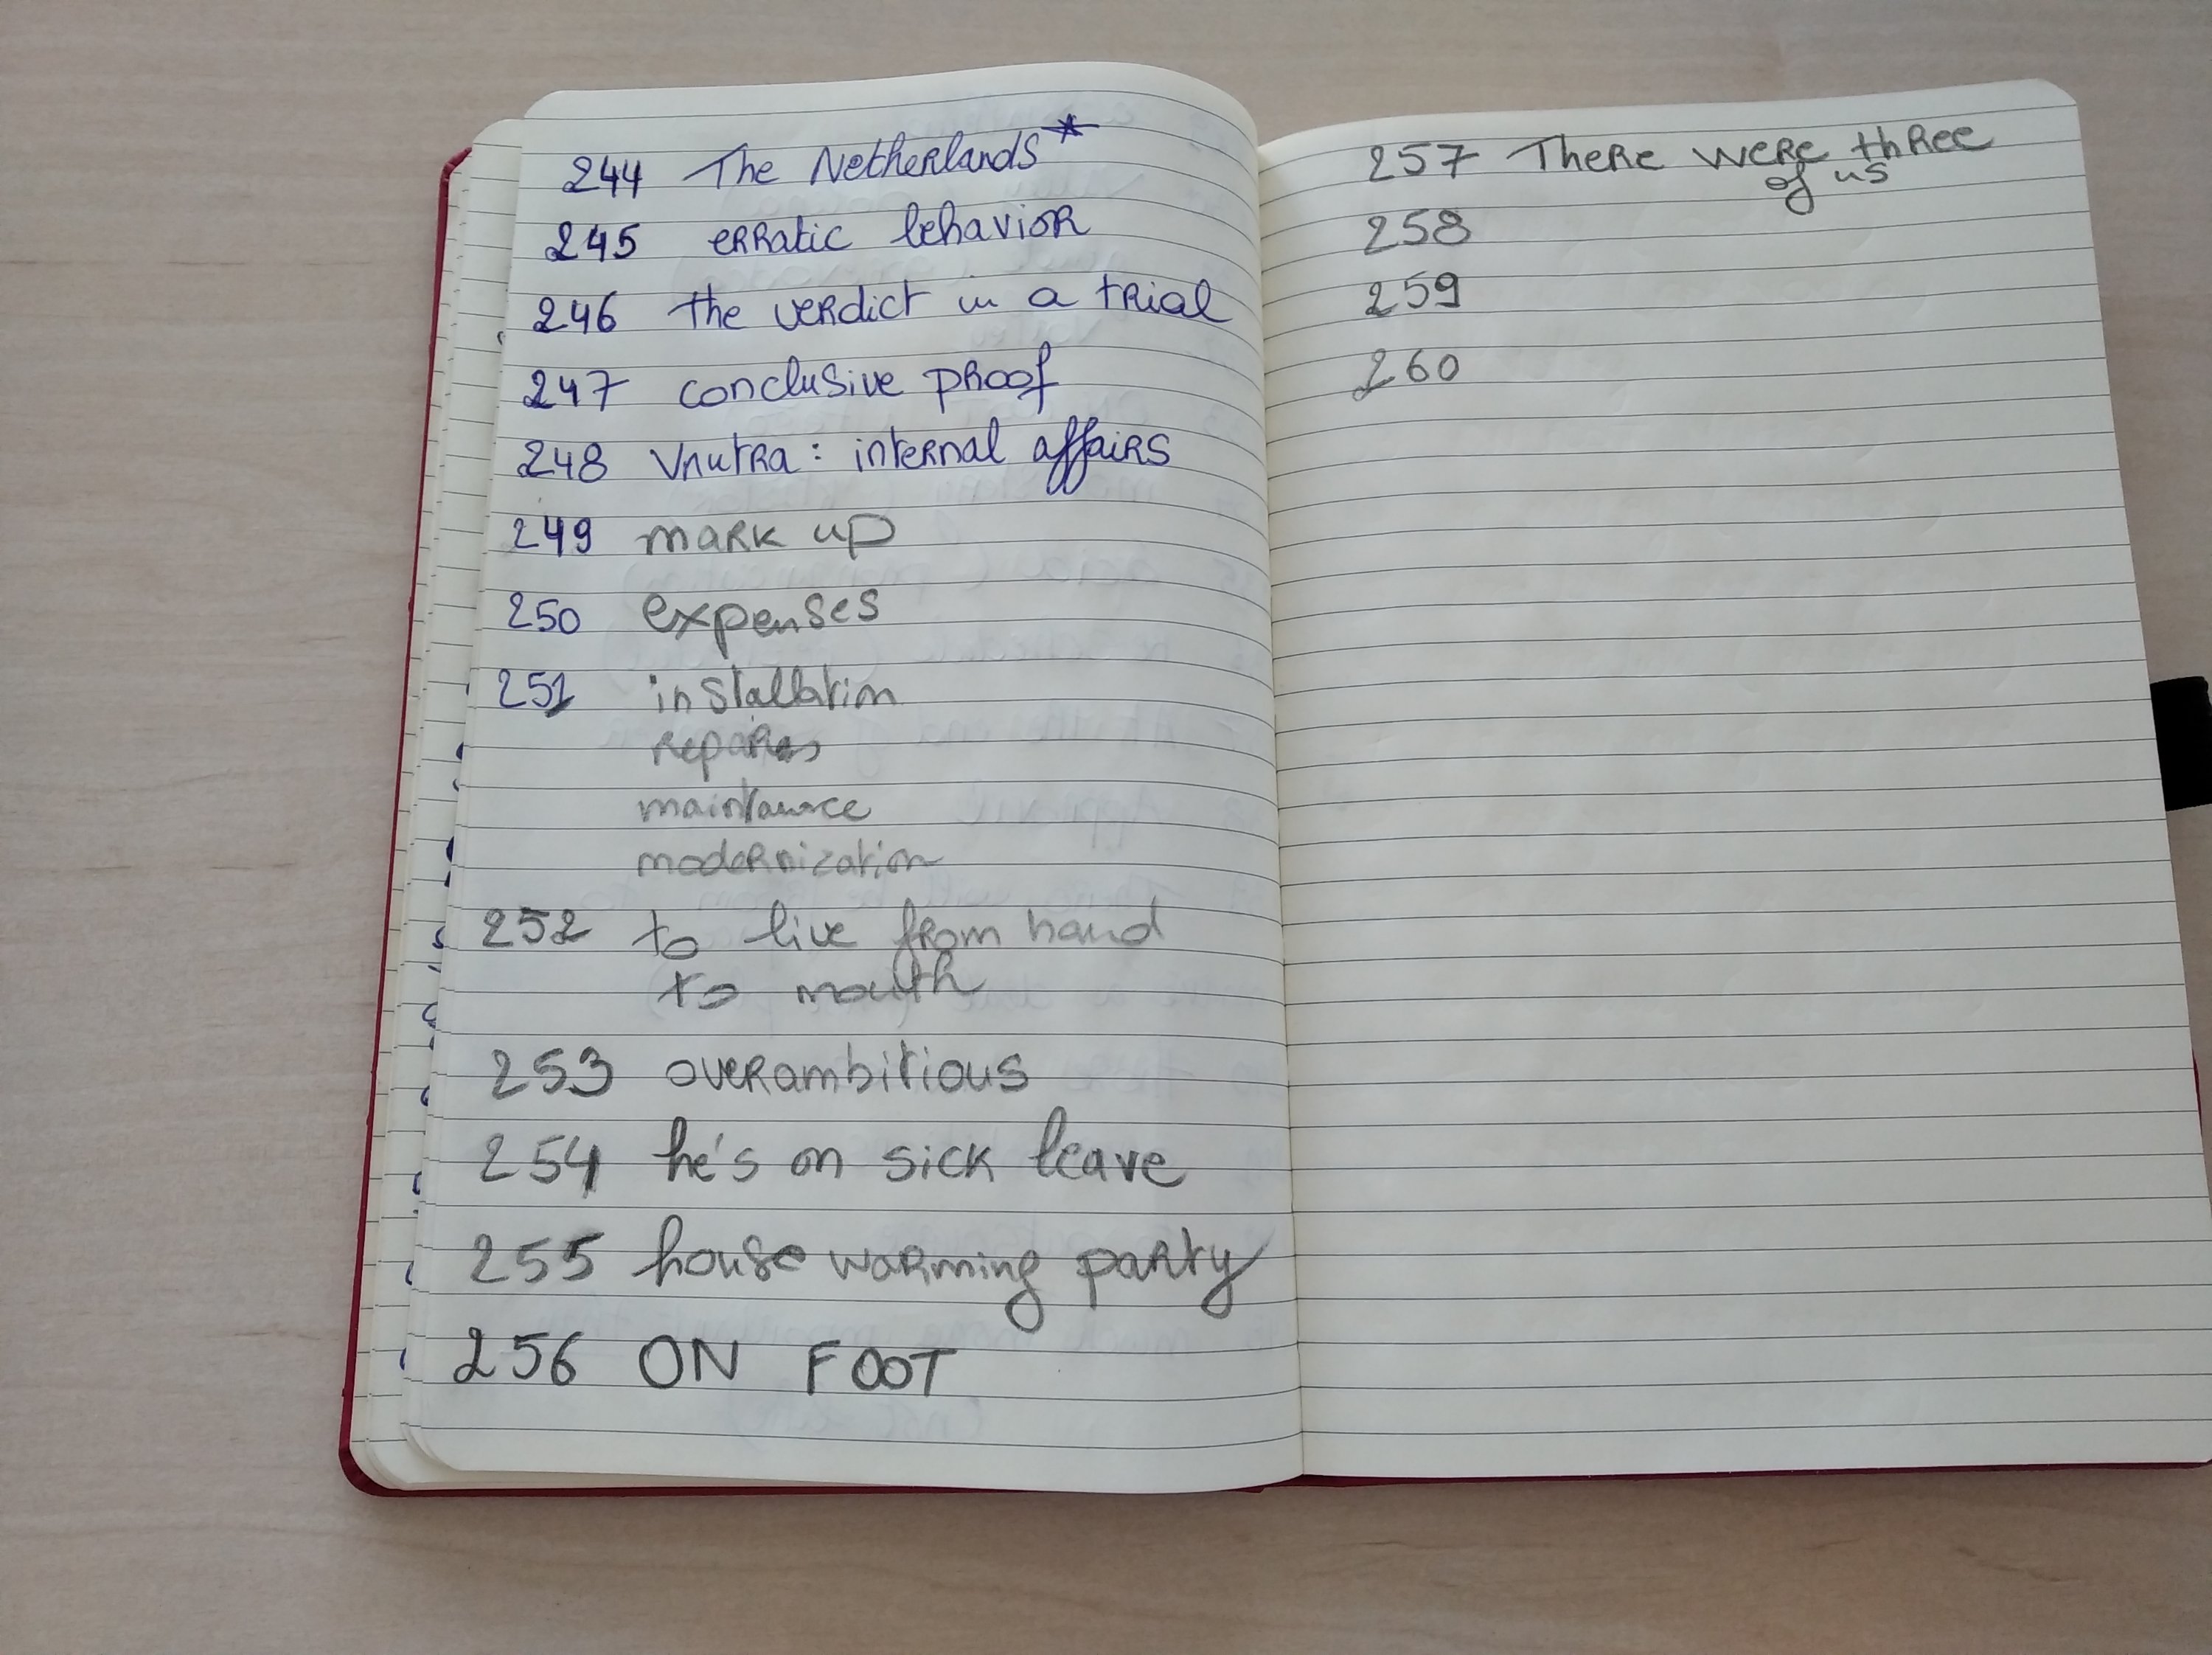 244 The Netherlands*
245 erratic behavior
246 the verdict in a trial
247 conclusive proof
248 Vnutra: internal affairs
249 mark up
250 expenses
251 installation
repaires
maintance
modernization
252 to live from hand
to mouth
253 overambitious
254 he's on sick leave
255 house warming party
256 ON FOOT
257 There were three
of us
258
259
260